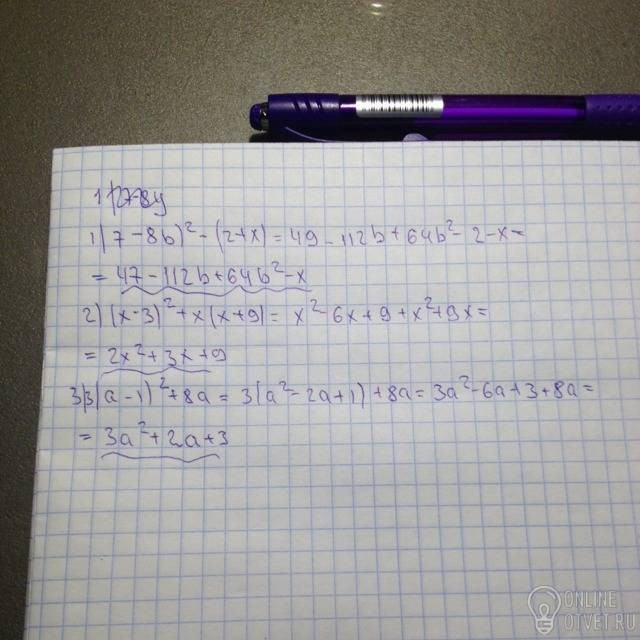 1) (7-8b)² - (2+x) = 49 - 112b + 64b² - 2 - x =
= 47 - 112b + 64b² - x
2) (x-3)² + x(x+9) = x² - 6x + 9 + x² + 9x =
= 2x² + 3x + 9
3) 3(a-1)² + 8a = 3(a² - 2a + 1) + 8a = 3a² - 6a + 3 + 8a =
= 3a² + 2a + 3
ONLINE
OTVET.RU